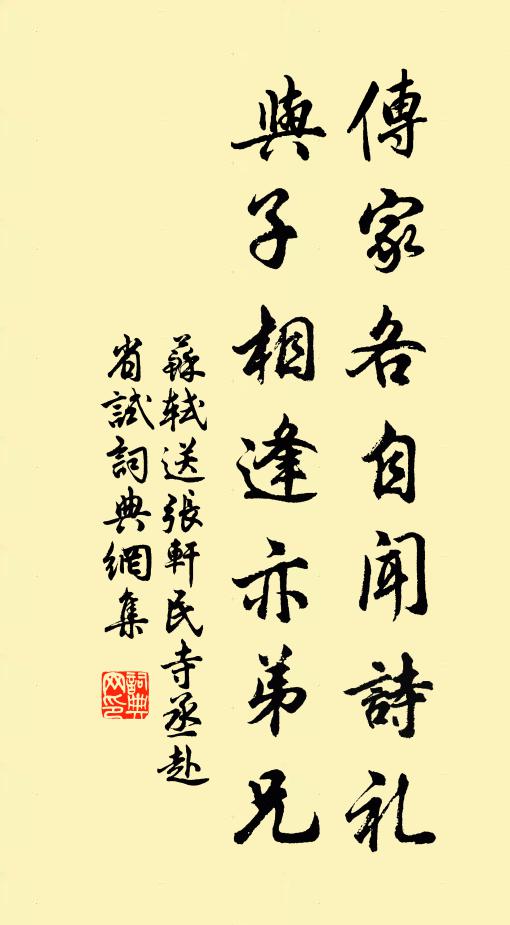 傳家各自聞詩礼
與子相逢亦弟兄
蘇軾送張軒民寺丞赴
省試詞典網集
詞典
网印